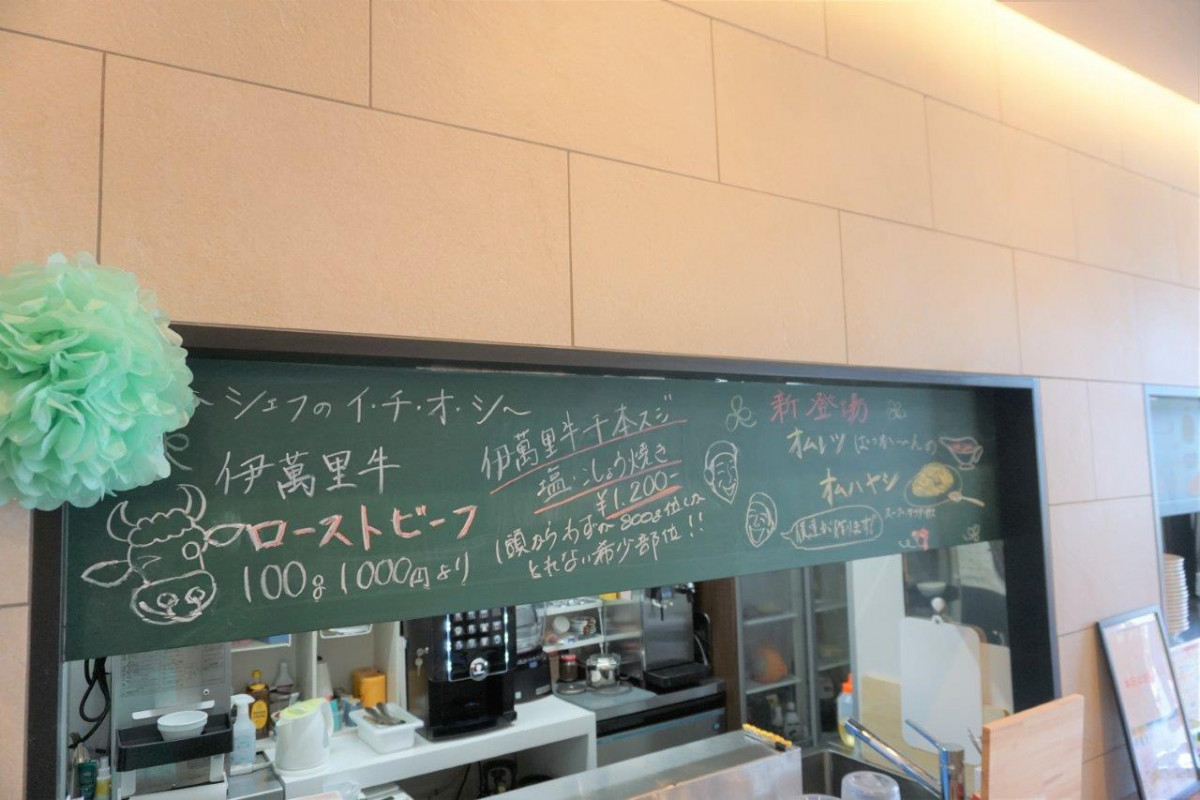 ～シェフのイ・チ・オ・シ～
伊萬里牛
ローストビーフ
100g 1000円より
伊萬里牛千本スジ
塩・こしょう焼き
¥1,200-
1頭からわずか800g位しか
とれない希少部位!!
新登場
オムレツ
オムハヤシ